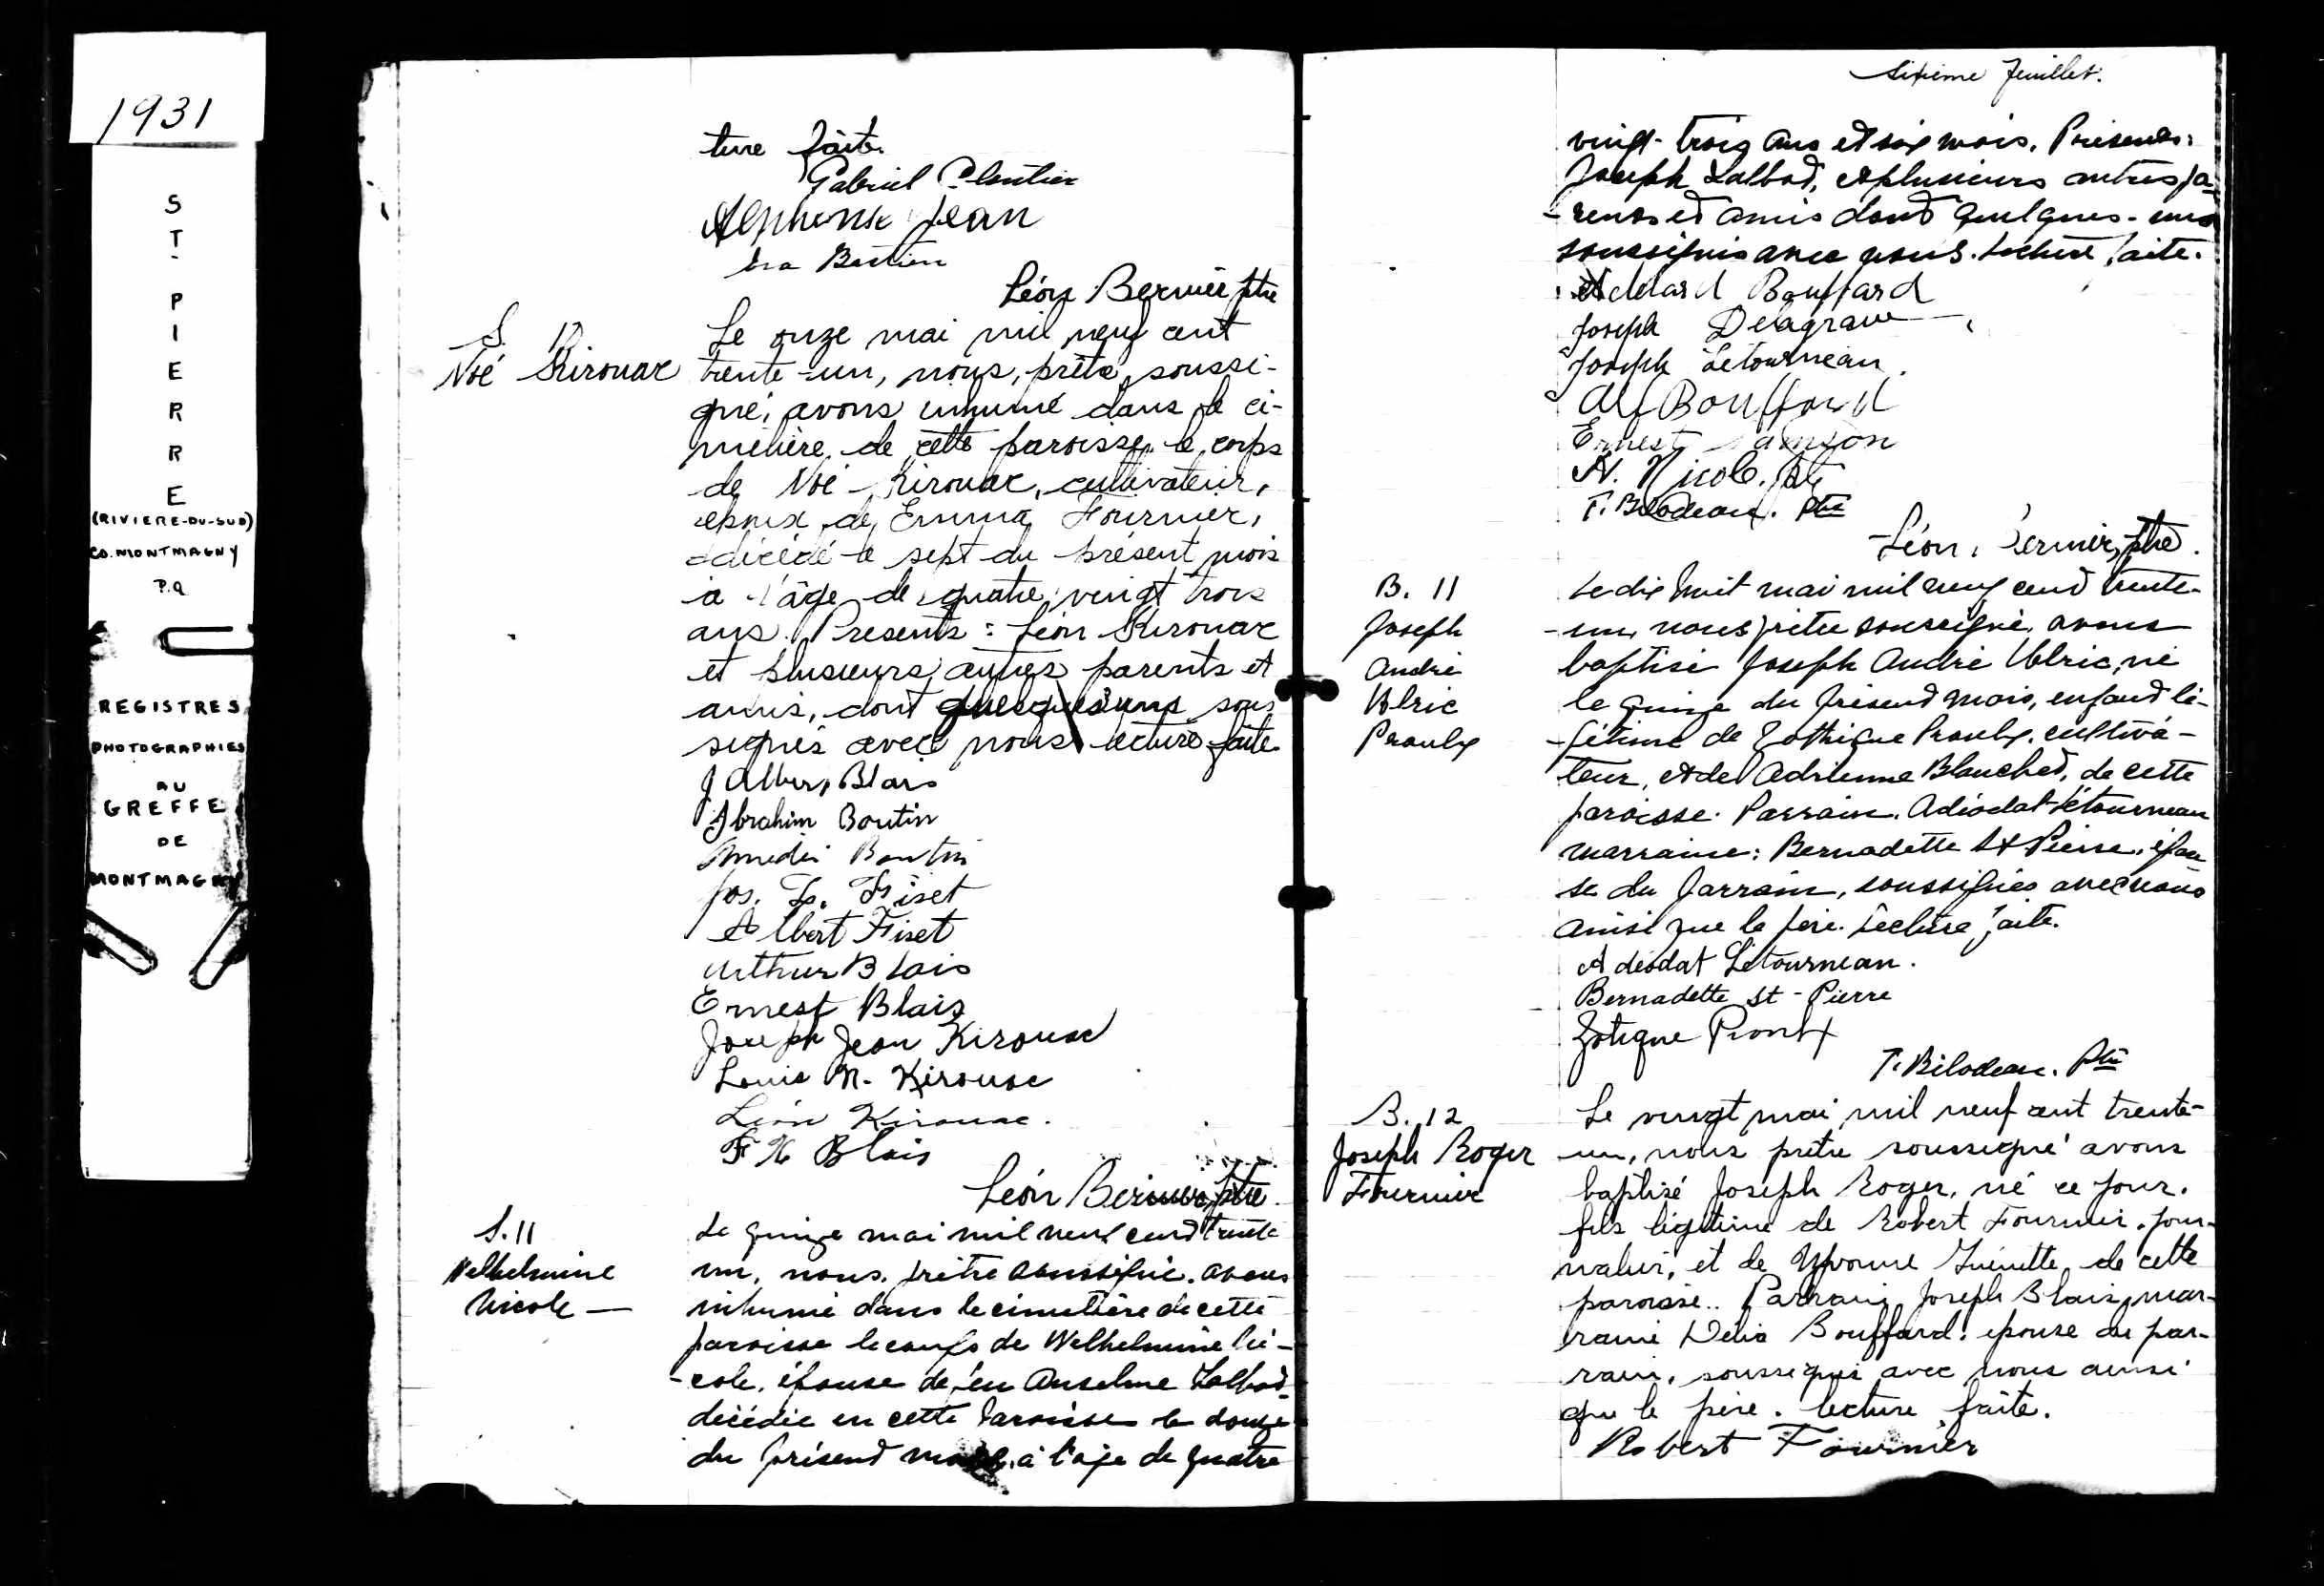 1931
ST-PIERRE
(RIVIERE-DU-SUD)
CO. MONTMAGNY
P.Q
REGISTRES
PHOTOGRAPHIES
AU
GREFFE
DE
MONTMAGNY
ture faite.
Gabriel
Alphonse Jean
Léon Bernier ptre
S.
Noé Kirouac
Le onze mai mil neuf cent
trente-un, nous, prêtre soussi-
gné, avons inhumé dans le ci-
metière de cette paroisse le corps
de Noé Kirouac, cultivateur,
époux de Emma Fournier,
décédé le sept du présent mois
à l'âge de quatre vingt trois
ans. Présents: Léon Kirouac
et plusieurs autres parents et
amis, dont quelques uns sous
signés avec nous lecture faite.
J Albert Blais
Abraham Boutin
Amedée Boutin
Jos. Fiset
Albert Fiset
Arthur Blais
Ernest Blais
Joseph Jean Kirouac
Louis N. Kirouac
Léon Kirouac.
F X Blais
Léon Bernier, ptre.
S. 11
Welhelmine
Nicole —
Le quinze mai mil neuf cent trente
un, nous, prêtre soussigné, avons
inhumé dans le cimetière de cette
paroisse le corps de Welhelmine Ni-
-cole, épouse de feu Anselme Talbot,
décédée en cette paroisse le douze
du présent mois, à l'age de quatre
sixième feuillet.
vingt-trois ans et six mois. Présents:
Joseph Talbot, et plusieurs autres pa-
-rents et amis dont quelques-uns
soussignés avec nous. Lecture faite.
Adélard Bouffard
Joseph Delagrave
Joseph Letourneau.
Alf Bouffard
Ernest
N. Nicole. Ptre
T. Bilodeau. Ptre
Léon Bernier, ptre.
B. 11
Joseph
André
Ulric
Proulx
Le dix huit mai mil neuf cent trente-
-un, nous prêtre soussigné, avons
baptisé Joseph André Ulric, né
le quinze du présent mois, enfant lé-
-gitime de Zothique Proulx, cultiva-
teur, et de Adrienne Blanchet, de cette
paroisse. Parrain. Adéodat Létourneau
marraine: Bernadette St Pierre, épou
se du parrain, soussignés avec nous
ainsi que le père. Lecture faite.
Adéodat Létourneau.
Bernadette St-Pierre
Zotique Proulx
T. Bilodeau. Ptre
B. 12
Joseph Roger
Fournier
Le vingt mai mil neuf cent trente-
un, nous prêtre soussigné avons
baptisé Joseph Roger, né ce jour,
fils légitime de Robert Fournier, jour-
nalier, et de Yvonne Guénette de cette
paroisse.. Parrain Joseph Blais, mar-
raine Délia Bouffard, épouse du par-
rain, soussignés avec nous ainsi
que le père. lecture faite.
Robert Fournier